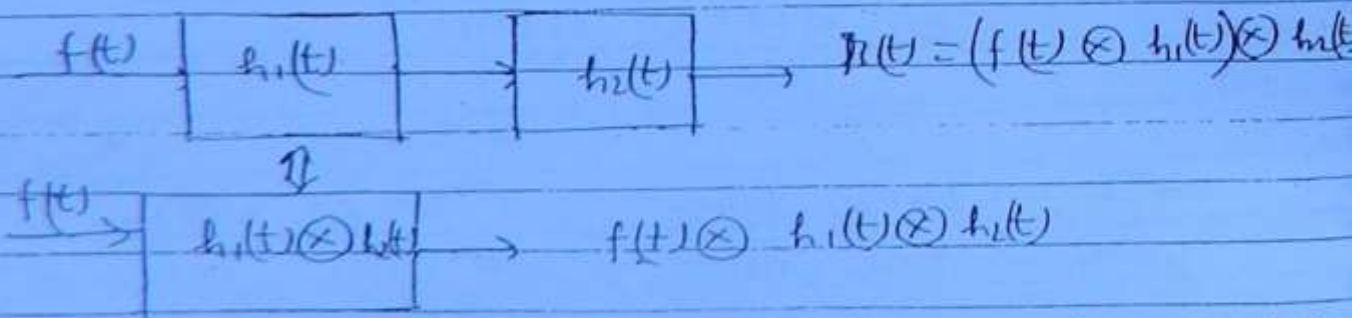 f(t) h₁(t) h₂(t) r(t) = (f(t) ⊗ h₁(t)) ⊗ h₂(t
⇕
f(t) h₁(t) ⊗ h₂(t) f(t) ⊗ h₁(t) ⊗ h₂(t)